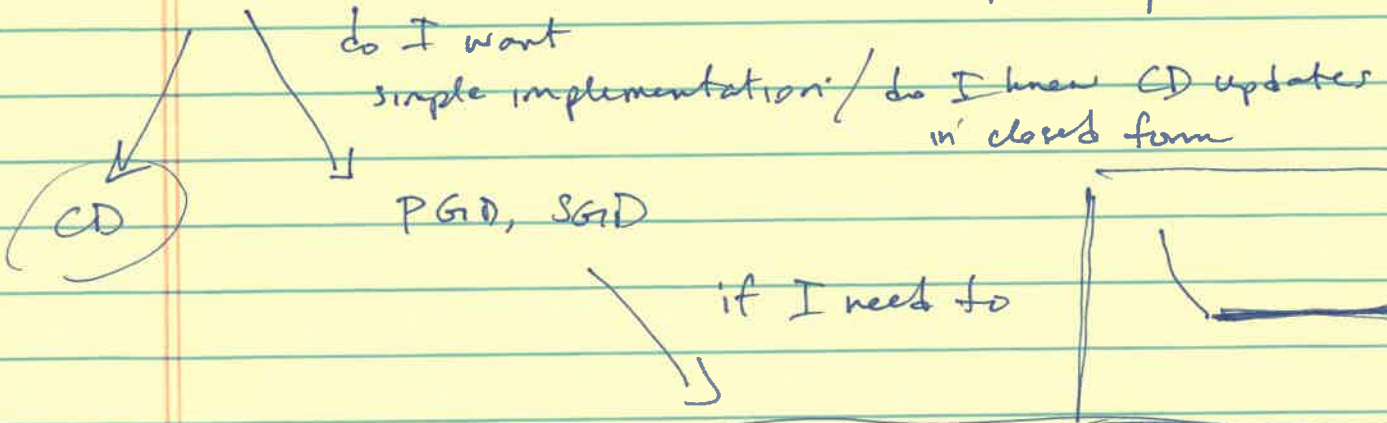 do I want
simple implementation / do I know CD updates
in closed form
CD
PGD, SGD
if I need to